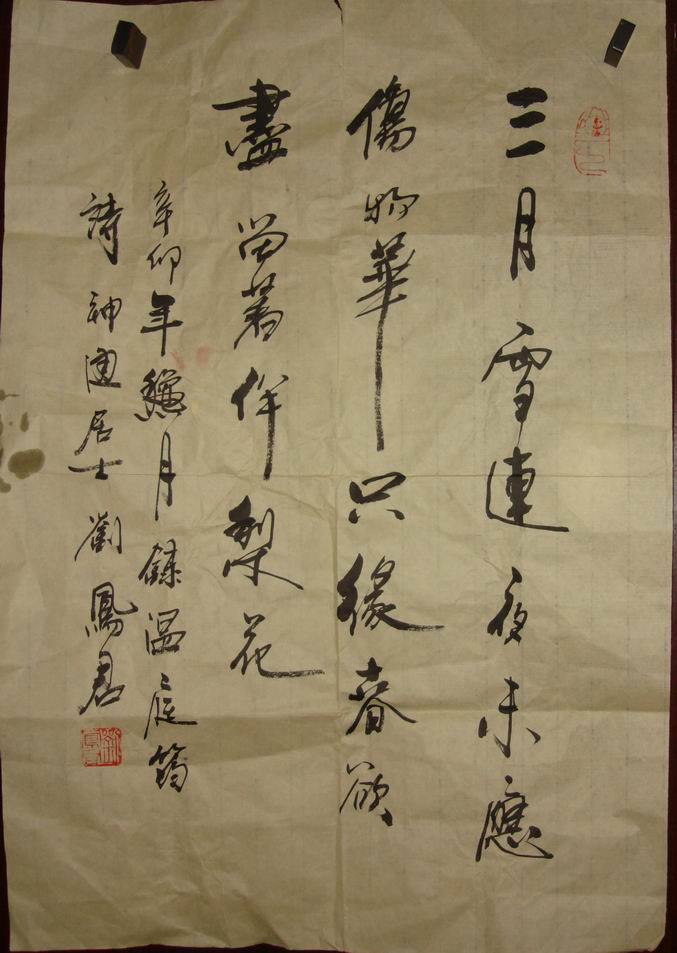 三月雪連夜未應
傷物華只緣春欲
盡留著伴梨花
辛卯年龝月錄温庭筠
詩神運居士劉鳳君